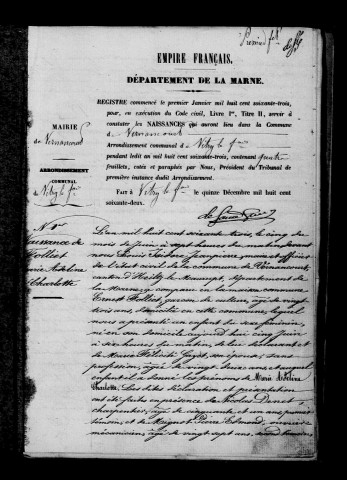 Premier f.et
EMPIRE FRANÇAIS.
DÉPARTEMENT DE LA MARNE.
REGISTRE commencé le premier Janvier mil huit cent soixante-trois,
pour, en exécution du Code civil, Livre Ier, Titre II, servir à
constater les NAISSANCES qui auront lieu dans la Commune
de Vernancourt
Arrondissement communal de Vitry le f.ois
pendant ledit an mil huit cent soixante-trois, contenant quatre
feuillets, cotés et paraphés par Nous, Président du Tribunal de
première instance dudit Arrondissement.
FAIT à Vitry le f.ois le quinze Décembre mil huit cent
soixante-deux.
MAIRIE
de Vernancourt
ARRONDISSEMENT
COMMUNAL
de Vitry le f.ois
N° 1er
Naissance de
Folliot
Marie Adelina
Charlotte
L'an mil huit cent soixante trois, le cinq du
mois de Juin à sept heures du matin, devant
nous Louis Isidore Jeanpierre, maire et officier
de l'état civil de la commune de Vernancourt,
canton d'Heiltz le Maurupt, département de
la Marne, a comparu en la maison commune
Ernest Folliot, garçon de culture, âgé de vingt
trois ans, domicilié en cette commune, lequel
nous a présenté un enfant du sexe féminin,
né en son domicile aujourd'hui cinq Juin
à six heures du matin, de lui déclarant et
de Marie Félicité Guyot, son épouse, sans
profession, âgée de vingt ans, et auquel
enfant il a donné les prénoms de Marie Adelina
Charlotte. Les dites déclaration et présentation
ont été faites en présence de Nicolas
charpentier, âgé de cinquante et un ans premier
témoin, et de Maignot Pierre Edmond, ouvrier
mécanicien, âgé de vingt sept ans, second témoin